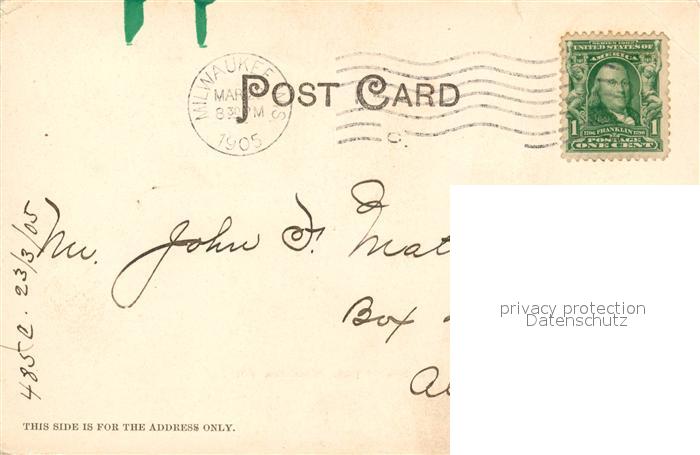 MILWAUKEE, WIS
MAR
8 30 PM
1905
POST CARD
C.
SERIES 1902
UNITED STATES OF
AMERICA
1 FRANKLIN 1
POSTAGE
ONE CENT
Mr. John F. Mat
Box
privacy protection
Datenschutz
485 C. 23/3/05
THIS SIDE IS FOR THE ADDRESS ONLY.